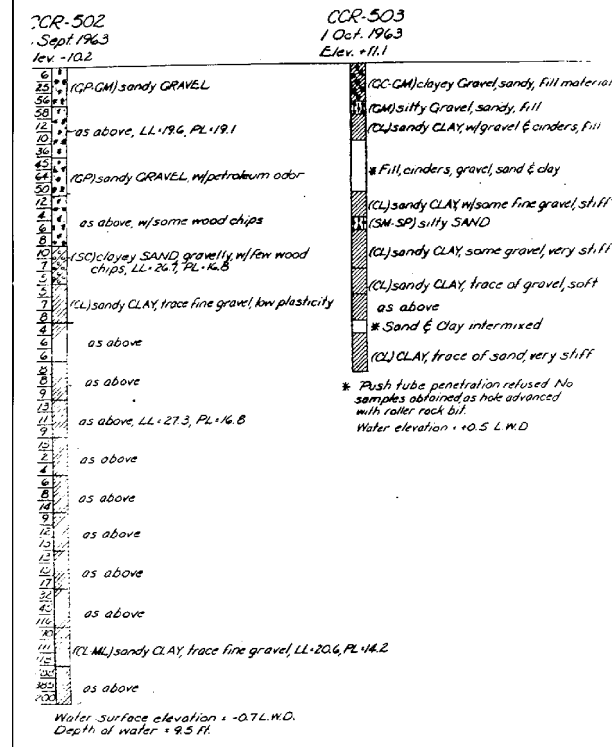 CCR-502
Sept. 1963
lev. -10.2
6
25
(GP-GM) sandy GRAVEL
56
58
12
as above, LL=19.6, PL=19.1
10
36
45
64
(GP) sandy GRAVEL, w/petroleum odor
50
12
4
as above, w/some wood chips
6
8
10
(SC) clayey SAND gravelly, w/few wood
7
chips, LL=26.7, PL=16.8
7
(CL) sandy CLAY, trace fine gravel, low plasticity
8
4
6
as above
6
8
as above
9
13
11
as above, LL=27.3, PL=16.8
9
2
as above
4
6
8
as above
14
9
12
as above
as above
17
as above
(CL-ML) sandy CLAY, trace fine gravel, LL=20.6, PL=14.2
as above
Water surface elevation = -0.7 L.W.D.
Depth of water = 9.5 Ft.
CCR-503
1 Oct. 1963
Elev. +11.1
(GC-GM) clayey Gravel, sandy, Fill material
(GM) silty Gravel, sandy, fill
(CL) sandy CLAY, w/gravel & cinders, fill
* Fill, cinders, gravel, sand & clay
(CL) sandy CLAY, w/some fine gravel, stiff
(SM-SP) silty SAND
(CL) sandy CLAY, some gravel, very stiff
(CL) sandy CLAY, trace of gravel, soft
as above
* Sand & Clay intermixed
(CL) CLAY, trace of sand, very stiff
* Push tube penetration refused No
samples obtained, as hole advanced
with roller rock bit.
Water elevation = +0.5 L.W.D